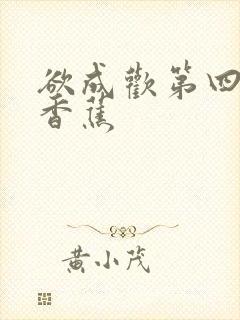 欲成歡第四
香蕉
黄小茂